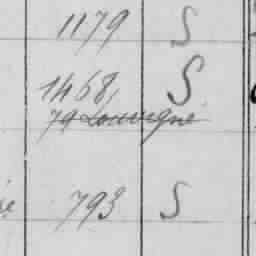 1179 S
1468, S
79 Louvigné
793 S